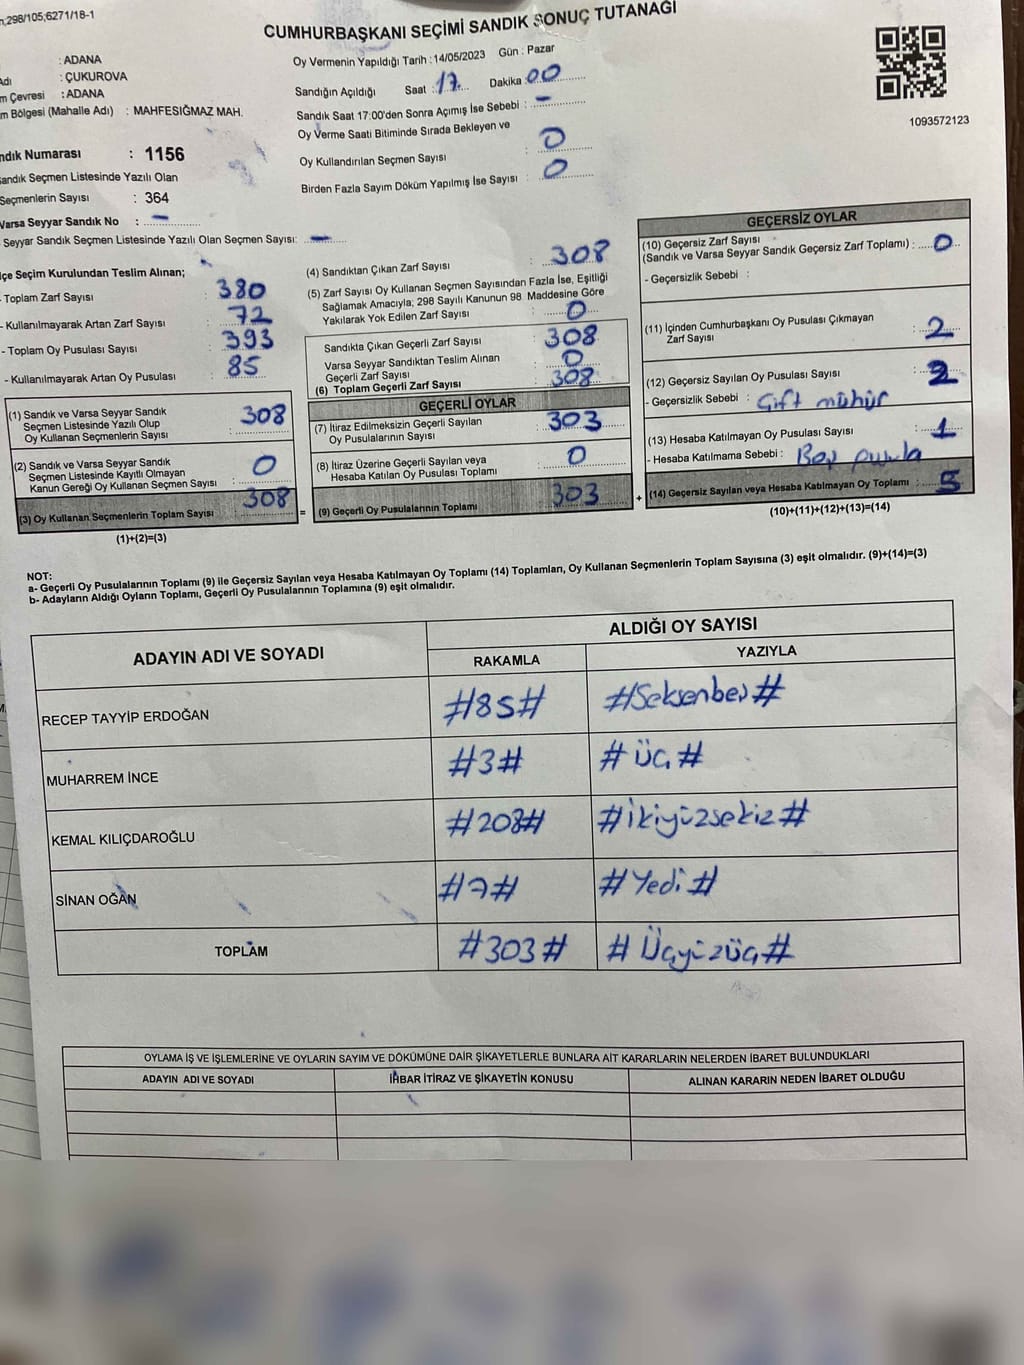 298/105;6271/18-1
CUMHURBAŞKANI SEÇİMİ SANDIK SONUÇ TUTANAĞI
: ADANA
: ÇUKUROVA
m Çevresi : ADANA
m Bölgesi (Mahalle Adı) : MAHFESIĞMAZ MAH.
Oy Vermenin Yapıldığı Tarih : 14/05/2023 Gün : Pazar
Sandığın Açıldığı Saat : 17 Dakika : 00
Sandık Saat 17:00'den Sonra Açımış İse Sebebi : –
Oy Verme Saati Bitiminde Sırada Bekleyen ve
Oy Kullandırılan Seçmen Sayısı : 0
Birden Fazla Sayım Döküm Yapılmış İse Sayısı : 0
1093572123
ndık Numarası : 1156
andık Seçmen Listesinde Yazılı Olan
Seçmenlerin Sayısı : 364
Varsa Seyyar Sandık No : –
Seyyar Sandık Seçmen Listesinde Yazılı Olan Seçmen Sayısı: –
lçe Seçim Kurulundan Teslim Alınan;
- Toplam Zarf Sayısı : 380
- Kullanılmayarak Artan Zarf Sayısı : 72
- Toplam Oy Pusulası Sayısı : 393
- Kullanılmayarak Artan Oy Pusulası : 85
(1) Sandık ve Varsa Seyyar Sandık
Seçmen Listesinde Yazılı Olup
Oy Kullanan Seçmenlerin Sayısı : 308
(2) Sandık ve Varsa Seyyar Sandık
Seçmen Listesinde Kayıtlı Olmayan
Kanun Gereği Oy Kullanan Seçmen Sayısı : 0
(3) Oy Kullanan Seçmenlerin Toplam Sayısı : 308
(1)+(2)=(3)
(4) Sandıktan Çıkan Zarf Sayısı : 308
(5) Zarf Sayısı Oy Kullanan Seçmen Sayısından Fazla İse, Eşitliği
Sağlamak Amacıyla; 298 Sayılı Kanunun 98 Maddesine Göre
Yakılarak Yok Edilen Zarf Sayısı : 0
Sandıkta Çıkan Geçerli Zarf Sayısı : 308
Varsa Seyyar Sandıktan Teslim Alınan
Geçerli Zarf Sayısı : 0
(6) Toplam Geçerli Zarf Sayısı : 308
GEÇERLİ OYLAR
(7) İtiraz Edilmeksizin Geçerli Sayılan
Oy Pusulalarının Sayısı : 303
(8) İtiraz Üzerine Geçerli Sayılan veya
Hesaba Katılan Oy Pusulası Toplamı : 0
=
(9) Geçerli Oy Pusulalarının Toplamı : 303
+
GEÇERSİZ OYLAR
(10) Geçersiz Zarf Sayısı
(Sandık ve Varsa Seyyar Sandık Geçersiz Zarf Toplamı) : 0
- Geçersizlik Sebebi :
(11) İçinden Cumhurbaşkanı Oy Pusulası Çıkmayan
Zarf Sayısı : 2
(12) Geçersiz Sayılan Oy Pusulası Sayısı : 2
- Geçersizlik Sebebi : Çift mühür
(13) Hesaba Katılmayan Oy Pusulası Sayısı : 1
- Hesaba Katılmama Sebebi : Boş pusula
(14) Geçersiz Sayılan veya Hesaba Katılmayan Oy Toplamı : 5
(10)+(11)+(12)+(13)=(14)
NOT:
a- Geçerli Oy Pusulalarının Toplamı (9) ile Geçersiz Sayılan veya Hesaba Katılmayan Oy Toplamı (14) Toplamları, Oy Kullanan Seçmenlerin Toplam Sayısına (3) eşit olmalıdır. (9)+(14)=(3)
b- Adayların Aldığı Oyların Toplamı, Geçerli Oy Pusulalarının Toplamına (9) eşit olmalıdır.
ADAYIN ADI VE SOYADI
ALDIĞI OY SAYISI
RAKAMLA YAZIYLA
RECEP TAYYİP ERDOĞAN #85# #Seksenbeş#
MUHARREM İNCE #3# #Üç#
KEMAL KILIÇDAROĞLU #208# #İkiyüzsekiz#
SİNAN OĞAN #7# #Yedi#
TOPLAM #303# #Üçyüzüç#
OYLAMA İŞ VE İŞLEMLERİNE VE OYLARIN SAYIM VE DÖKÜMÜNE DAİR ŞİKAYETLERLE BUNLARA AİT KARARLARIN NELERDEN İBARET BULUNDUKLARI
ADAYIN ADI VE SOYADI İHBAR İTİRAZ VE ŞİKAYETİN KONUSU ALINAN KARARIN NEDEN İBARET OLDUĞU